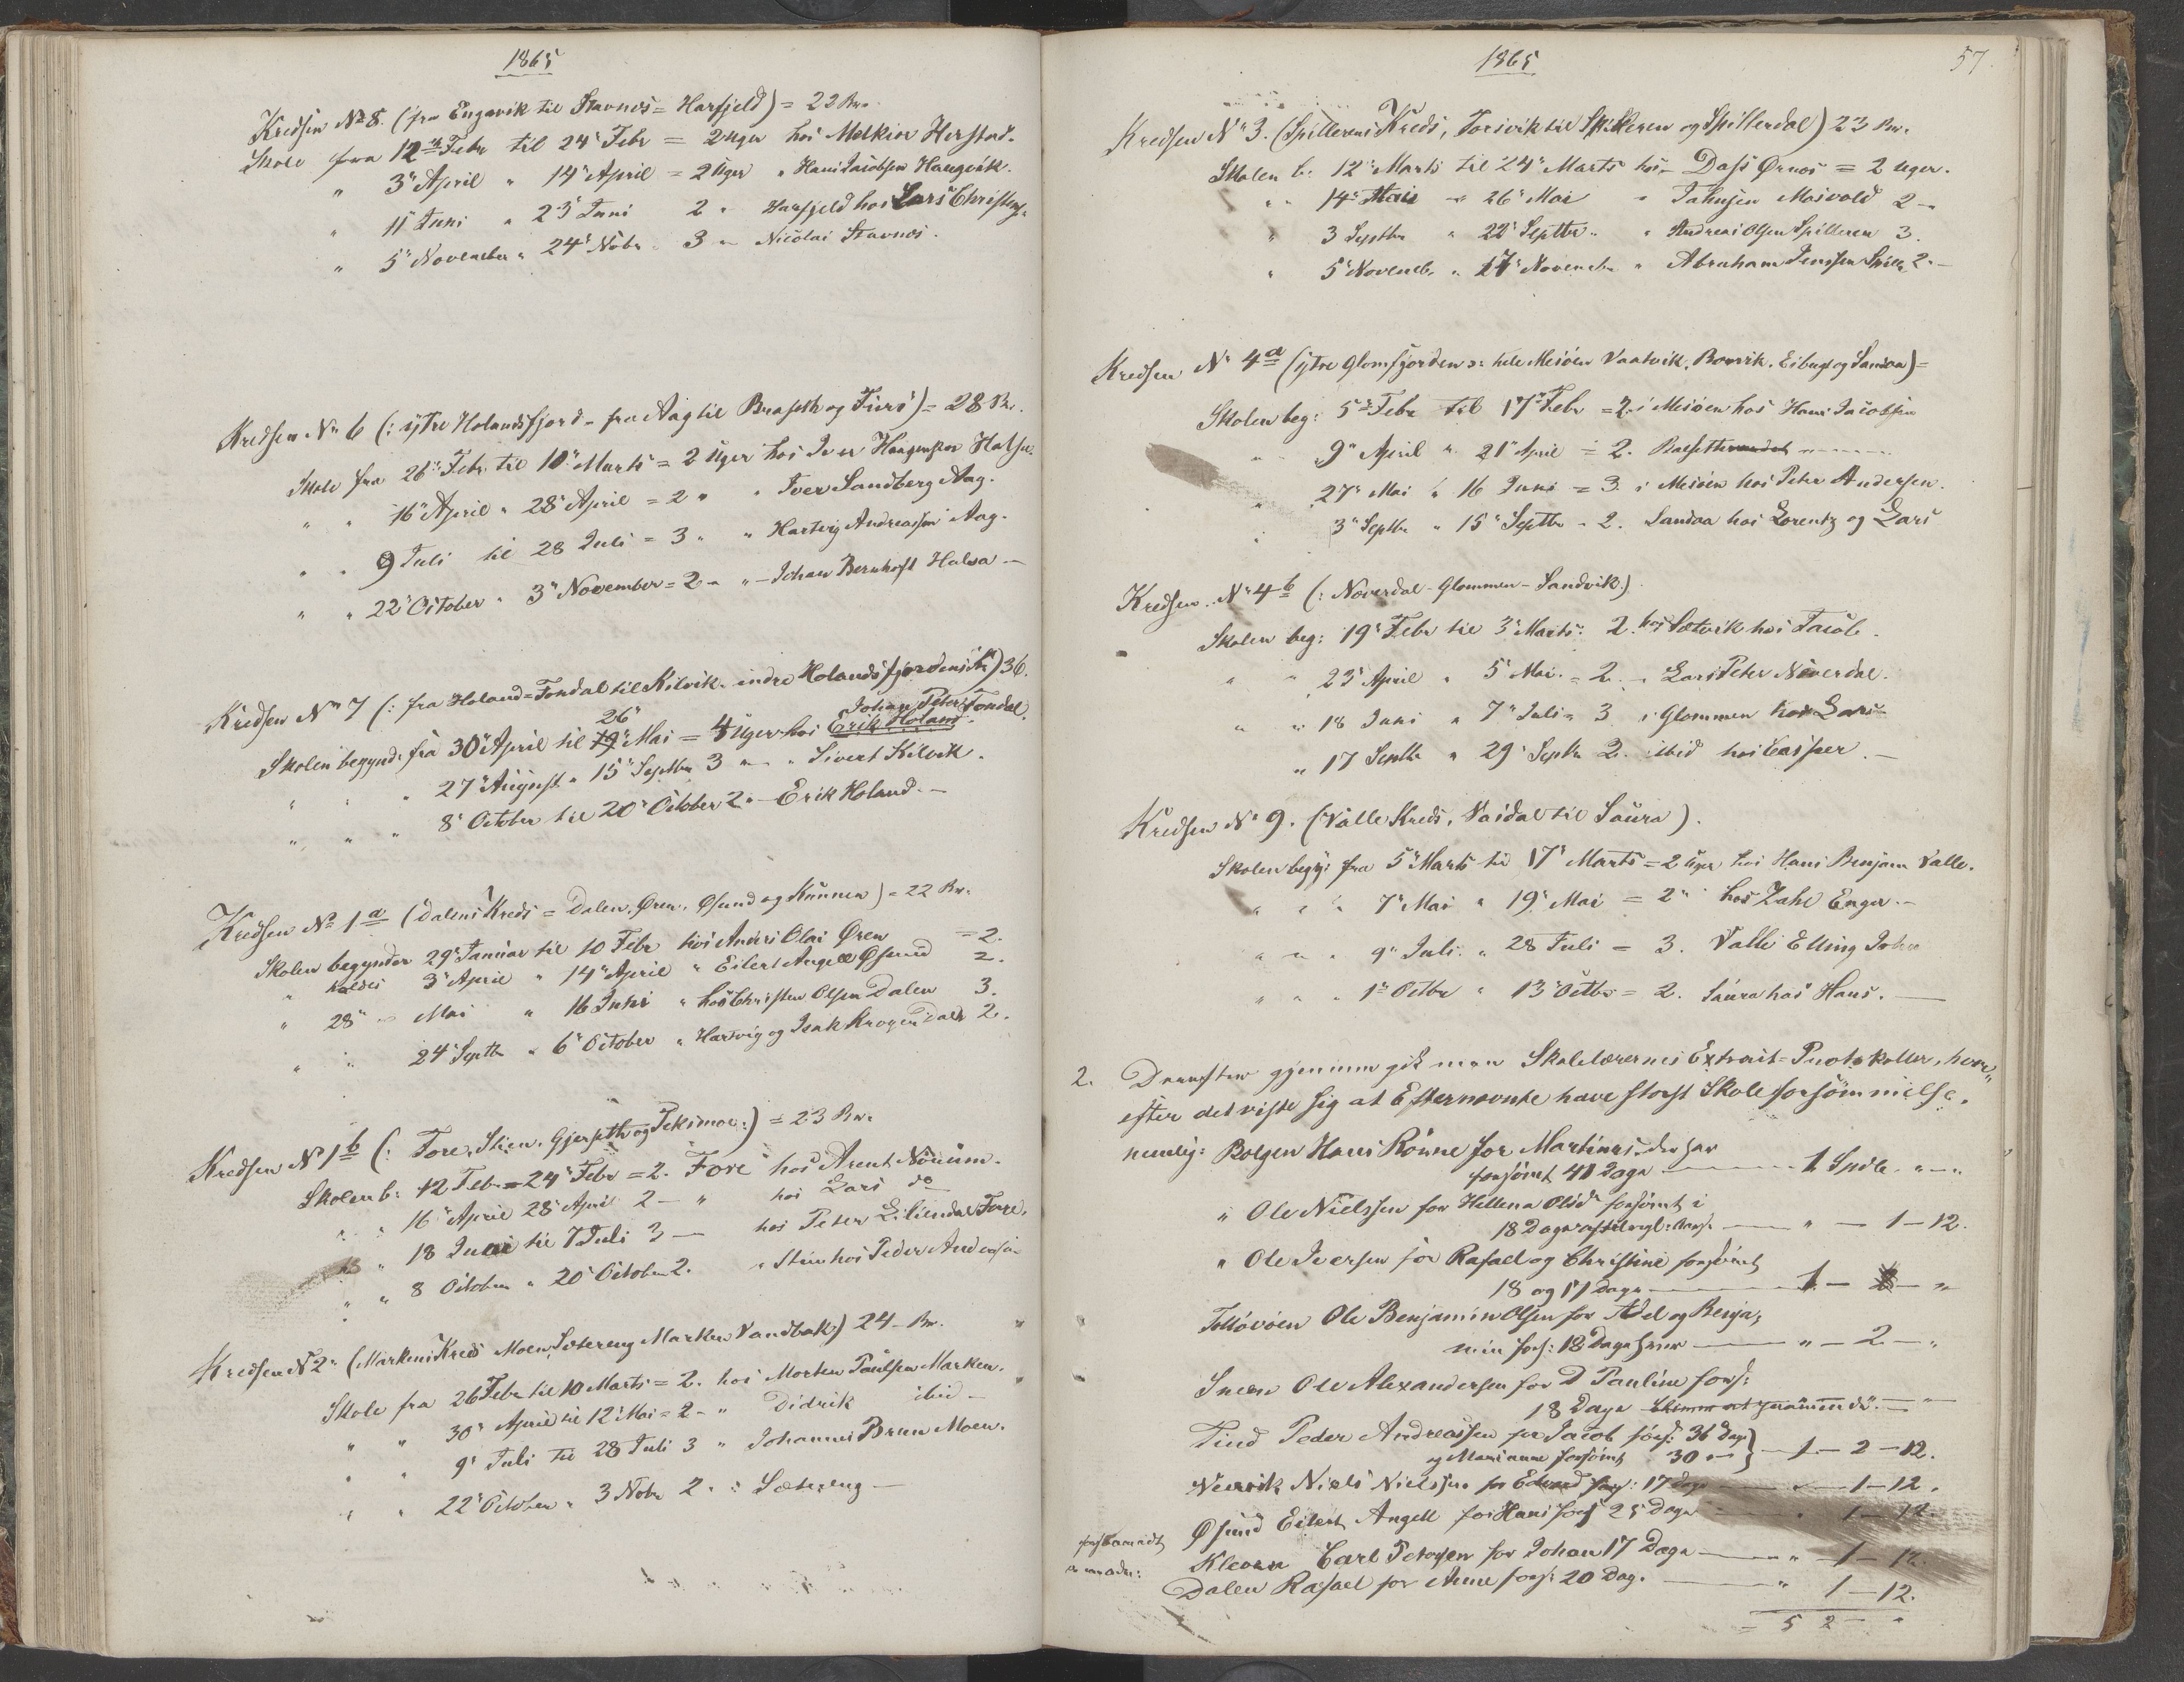 1865
Kredsen No 8. (fra Engavik til Stavnes = Harfjeld) = 22 Bn.
Skole fra 12te Febr til 24' Febr = 2 uger hos Melkior Herstad.
" 3' April " 14' April = 2 Uger " Hans Jacobsen Haugvik.
" 11' Juni " 23' Juni 2 " Harfjeld hos Lars Christens.
" 5' November " 24' Nobr 3 " Nicolai Stavnes.
Kredsen No 6 (: ytre Holandsfjord - fra Aag til Braseth og Furö) = 28 Bn.
Skole fra 26' Febr. til 10' Marts = 2 Uger hos Iver Haagensen Halsa.
" " 16' April " 28' April = 2 " " Iver Sandberg Aag.
" " 9 Juli til 28 Juli = 3 " " Hartvig Andreassen Aag.
" " 22' October " 3' November = 2 " " Johan Bernhoft Halsa
Kredsen No 7 (: fra Holand = Fondal til Kilvik. indre Holandsfjordens Kr) 36.
26' Johan Peter Fondal.
Skolen begynd: fra 30' April til 19' Mai = 4 Uger hos Erik Holand.
" " " 27' August " 15' Septbr 3 " " Sivert Kilvik.
" " " 8' October til 20' October 2 " Erik Holand.
Kredsen No 1a (Dalens Kreds = Dalen, Øren, Øsund og Kunnen) = 22 Bn.
Skolen begynder 29' Januar til 10 Febr hos Anders Olai Øren = 2.
" holdes 3' April " 14' April " Eilert Angell Øsund 2.
" 28' " Mai " 16 Juni " hos Christen Olsen Dalen 3.
" " 24' Septbr " 6' October " Hartvig og Isak Krogen Dalen 2.
Kredsen No 1b (: Fore, Stien, Gjerseth og Tekimoe:) = 23 Bn.
Skolen b: 12 Febr = 24' Febr = 2. Fore hos Arent Nöuum.
" " 16' April 28' April 2 - " hos Lars do
" " 18 Juni til 7 Juli 3 — hos Peter Liliendal Fore.
" " 8 October " 20' October 2. " Stien hos Peder Andersen
Kredsen No 2. (Markens Kreds Moen, Sætereng Marken Vandbak) 24 - Bn.
Skole fra 26 Febr til 10 Marts = 2. hos Morten Paulsen Marken.
" " 30' April til 12' Mai = 2 - " Didrik ibid -
" " 9' Juli til 28 Juli 3 " Johannes Brun Moen.
" " 22' October " 3 Nobr 2 " : Sætereng —
1865
57.
Kredsen No 3. (Spillerens Kreds, Forsvik til Spilderen og Spillerdal) 23 Bn.
Skolen b: 12' Marts til 24' Marts hos Dass Ørnes = 2 uger.
" " 14' Mai — 26' Mai " Mosvold 2 -
" 3 Septbr " 22' Septbr " Andreas Olsen Spilleren 3.
" 5' Novemb. " 17' Novembr " Abraham Jenssen Spill. 2. -
Kredsen No 4a (ytre Glomfjorden o: hele Meiöen Vaatvik, Borvik, Eiberg og Sandaa) =
Skolen beg: 5te Febr til 17' Febr = 2. i Meiöen hos Hans Jacobsen
" " 9' April " 21' April = 2.
" 27' Mai " 16 Juni = 3. i Meiöen hos Peter Andersen.
" 3' Septbr " 15' Septbr - 2. Sandaa hos Lorentz og Lars
Kredsen No 4b (: Noverdal - Glommen - Sandvik:).
Skolen beg: 19' Febr til 3' Marts: 2. hos Sætvik hos Jacob.
" " 23' April " 5' Mai. = 2. - Lars Peter Növerdal.
" " 18 Juni " 7' Juli = 3 i Glommen hos Lars
" 17 Septbr " 29' Septbr 2. ibid hos Casper. -
Kredsen No 9. (Valle Kreds, Vaidal til Saura).
Skolen begy: fra 5' Marts til 17' Marts = 2 Uger hos Hans Benjam Valle.
" " " 7' Mai " 19' Mai = 2 " hos Zahl Enga. -
" " " 9' Juli. " 28 Juli = 3. Valle Elling John
" " " 1te Octbr " 13' Octbr = 2. Saura hos Hans. —
2. Dernæsten gjennemgik man Skolelærernes Extrait-Protokoller, hvor-
efter det viste sig at Efternævnte have störst Skoleforsömmelse,
nemlig: Bolgen Hans Rönne for Martinus, der har
forsömt 41 Dage — 1 Spdlr. " — "
" Ole Nielssen for Hellena Olsd forsömt i
18 Dage — " — 1 — 12.
" Ole Iversen for Rafael og Christine forsömt
18 og 17 Dage — 1. — "
Ole Benjamin Olsen for Adel og Benja-
min fors: 18 Dage hver — " — 2 — "
Sneen Ole Alexandersen for D Pauline fors:
18 Dage
Tind Peder Andreassen for Jacob förs: 36 Dage
og Marianne forsömt 30 " — 1 — 2 — 12.
Neverik Niels Nielssen for Edvard fors: 17 Dage — " — 1 — 12.
Øsund Eilert Angell for Hans fors 25 Dage — " 1 — 12.
Kleven Carl Petersen for Johan 17 Dage — " 1 — 12.
Dalen Rafael for Anne fors: 20 Dag. — " 1 — 12.
5 2 — "